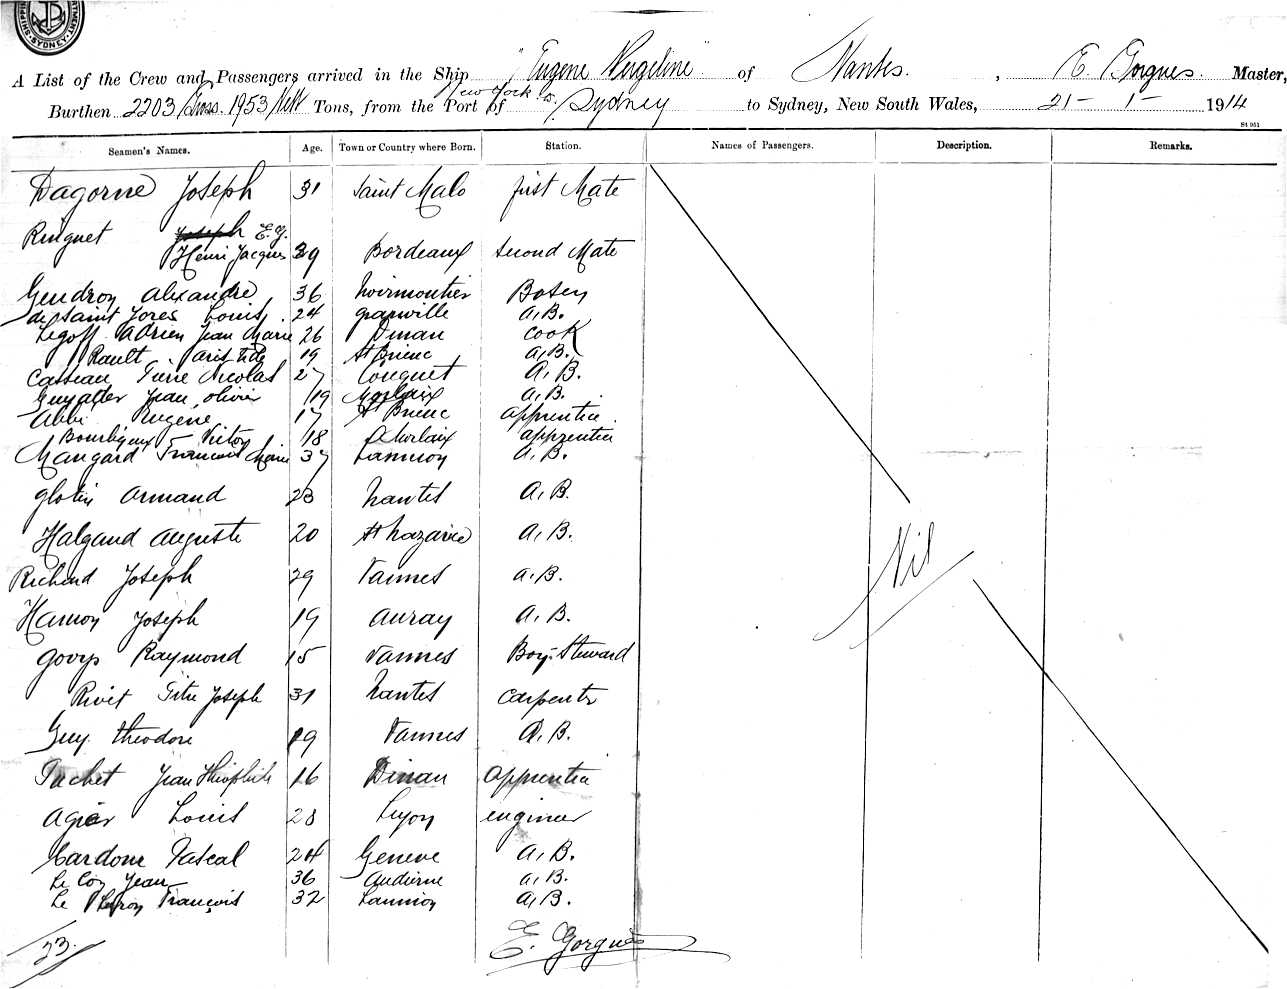 SHIPPING DEPARTMENT SYDNEY
A List of the Crew and Passengers arrived in the Ship "Eugene Pergeline" of Nantes. , E. Gorgues. Master,
Burthen 2203 Gross. 1953 Nett Tons, from the Port of New York to Sydney to Sydney, New South Wales, 21 - 1 - 1914
St 951
Seamen's Names. Age. Town or Country where Born. Station. Names of Passengers. Description. Remarks.
Dagorne Joseph 31 Saint Malo first Mate
Ringuet Joseph E.J.
Henri Jacques 39 Bordeaux second Mate
Gendron Alexandre 36 Noirmoutier Bosen
de Saint Jores Louis 24 granville A.B.
Legoff Adrien Jean Marie 26 Dinan cook
Rault Aristide 19 St Brieuc A.B.
Casseau Pierre Nicolas 27 Conquet A.B.
Guyader Jean Olivier 19 Morlaix A.B.
Abbé Eugene 17 St Brieuc apprentice
Bourbigeux Victor 18 Morlaix apprentice
Mangard Francois Marie 37 Lannion A.B.
glotin Armand 23 Nantes A.B.
Halgand Auguste 20 St Nazaire A.B.
Richend Joseph 29 Vannes A.B.
Hamon Joseph 19 Auray A.B.
Govys Raymond 15 Vannes Boy-Steward
Rivet Joseph 31 Nantes carpenter
Guy theodore 19 Vannes A.B.
Nil
Pachet Jean Théophile 16 Dinan apprentice
Agier Louis 28 Lyon engineer
Cardone Pascal 24 Geneve A.B.
Le Coz Jean 36 Audierne A.B.
Le François 32 Lannion A.B.
23.
E. Gorgues